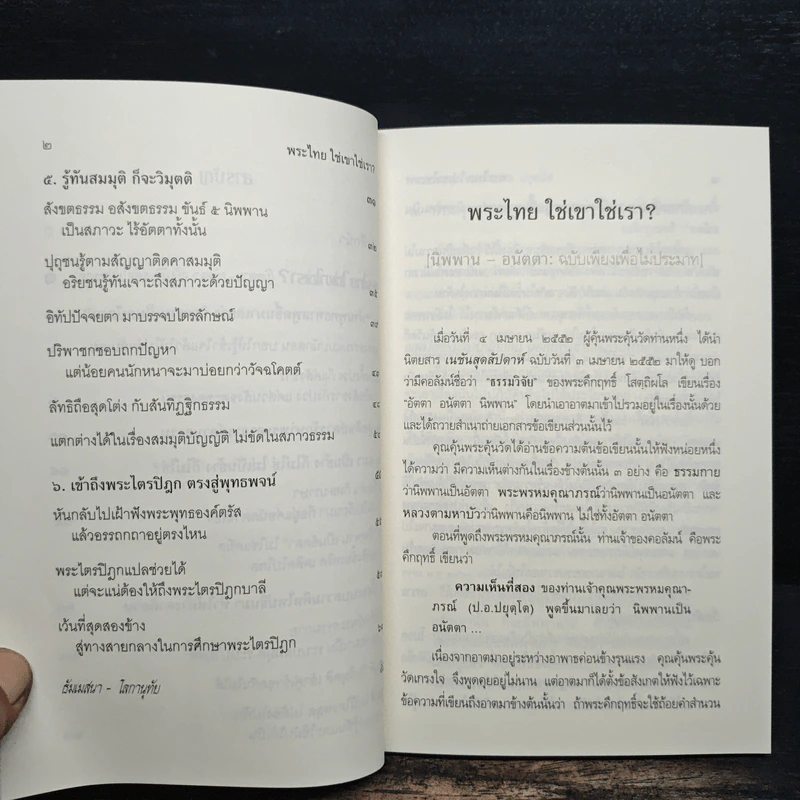 ๒
พระไทย ใช่เขาใช่เรา?
๕. รู้ทันสมมุติ ก็จะวิมุตติ
๓๑
สังขตธรรม อสังขตธรรม ขันธ์ ๕ นิพพาน
เป็นสภาวะ ไร้อัตตาทั้งนั้น
๓๒
ปุถุชนรู้ตามสัญญาติดคาสมมุติ
อริยชนรู้ทันเจาะถึงสภาวะด้วยปัญญา
๓๕
อิทัปปัจจยตา มาบรรจบไตรลักษณ์
ปริพาชกชอบถกปัญหา
แต่น้อยคนนักหนาจะมาบ่อยกว่าวัจฉโคตต์
ลัทธิถือสุดโต่ง กับสันทิฏฐิกธรรม
แตกต่างได้ในเรื่องสมมุติบัญญัติ ไม่ขัดในสภาวธรรม
๖. เข้าถึงพระไตรปิฎก ตรงสู่พุทธพจน์
หันกลับไปเฝ้าฟังพระพุทธองค์ตรัส
แล้วอรรถกถาอยู่ตรงไหน
พระไตรปิฎกแปลช่วยได้
แต่จะแน่ต้องให้ถึงพระไตรปิฎกบาลี
เว้นที่สุดสองข้าง
สู่ทางสายกลางในการศึกษาพระไตรปิฎก
ธัมเมสนา - โลกานุทัย
พระไทย ใช่เขาใช่เรา?
[นิพพาน – อนัตตา: ฉบับเพียงเพื่อไม่ประมาท]
เมื่อวันที่ ๔ เมษายน ๒๕๕๒ ผู้คุ้นพระคุ้นวัดท่านหนึ่ง ได้นำ
นิตยสาร เนชันสุดสัปดาห์ ฉบับวันที่ ๓ เมษายน ๒๕๕๒ มาให้ดู บอก
ว่ามีคอลัมน์ชื่อว่า “ธรรมวิจัย” ของพระคึกฤทธิ์ โสตฺถิผโล เขียนเรื่อง
“อัตตา อนัตตา นิพพาน” โดยนำเอาอาตมาเข้าไปรวมอยู่ในเรื่องนั้นด้วย
และได้ถวายสำเนาถ่ายเอกสารข้อเขียนส่วนนั้นไว้
คุณคุ้นพระคุ้นวัดได้อ่านข้อความต้นข้อเขียนนั้นให้ฟังหน่อยหนึ่ง
ได้ความว่า มีความเห็นต่างกันในเรื่องข้างต้นนั้น ๓ อย่าง คือ ธรรมกาย
ว่านิพพานเป็นอัตตา พระพรหมคุณาภรณ์ว่านิพพานเป็นอนัตตา และ
หลวงตามหาบัวว่านิพพานคือนิพพาน ไม่ใช่ทั้งอัตตา อนัตตา
ตอนที่พูดถึงพระพรหมคุณาภรณ์นั้น ท่านเจ้าของคอลัมน์ คือพระ
คึกฤทธิ์ เขียนว่า
ความเห็นที่สอง ของท่านเจ้าคุณพระพรหมคุณา-
ภรณ์ (ป.อ.ปยุตฺโต) พูดขึ้นมาเลยว่า นิพพานเป็น
อนัตตา ...
เนื่องจากอาตมาอยู่ระหว่างอาพาธค่อนข้างรุนแรง คุณคุ้นพระคุ้น
วัดเกรงใจ จึงพูดคุยอยู่ไม่นาน แต่อาตมาก็ได้ตั้งข้อสังเกตให้ฟังไว้เฉพาะ
ข้อความที่เขียนถึงอาตมาข้างต้นนั้นว่า ถ้าพระคึกฤทธิ์จะใช้ถ้อยคำสำนวน